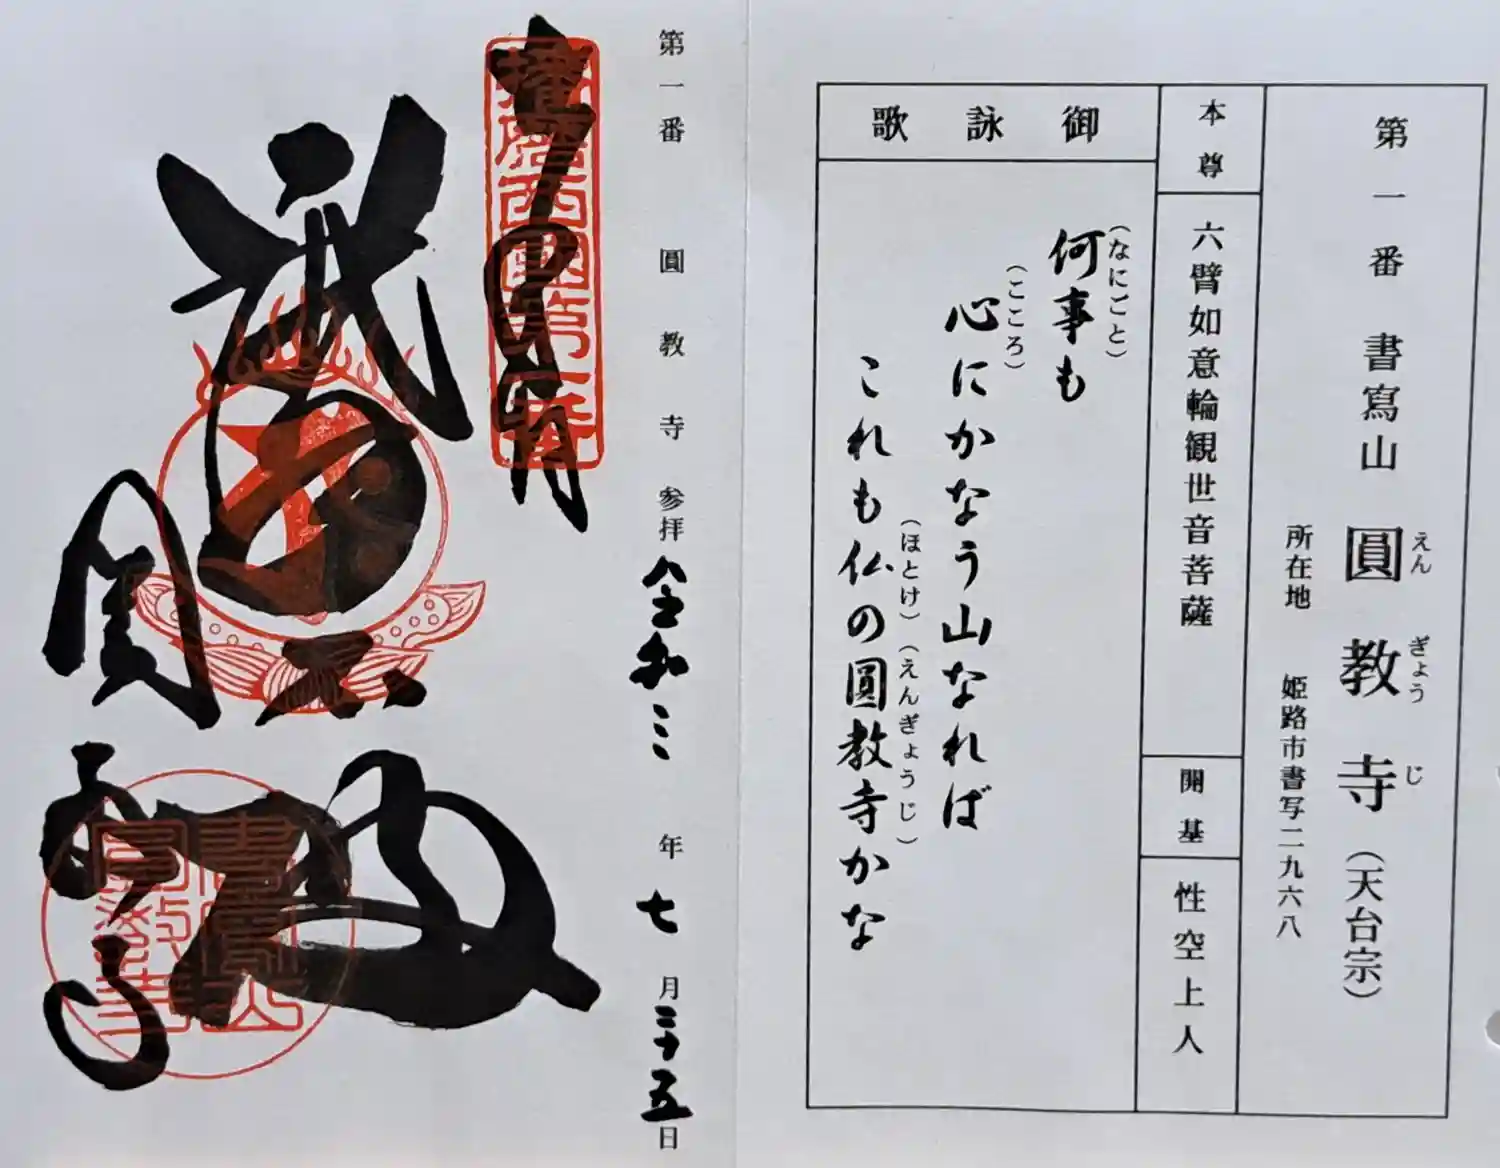 第一番 書寫山 圓教寺（天台宗）
えんぎょうじ
所在地 姫路市書写二九六八
本尊
六臂如意輪観世音菩薩
開基
性空上人
御詠歌
何事も
（なにごと）
心にかなう山なれば
（こころ）
これも仏の圓教寺かな
（ほとけ）（えんぎょうじ）
第一番 圓教寺 参拝 令和三年七月二十五日
播磨西國第一番
書寫山
圓教寺